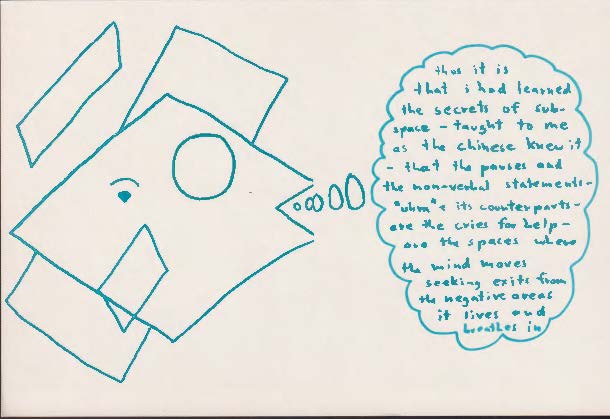 thus it is
that i had learned
the secrets of sub-
space - taught to me
as the chinese knew it
- that the pauses and
the non-verbal statements -
"uhm" & its counterparts -
are the cries for help -
are the spaces where
the mind moves
seeking exits from
the negative areas
it lives and
breathes in